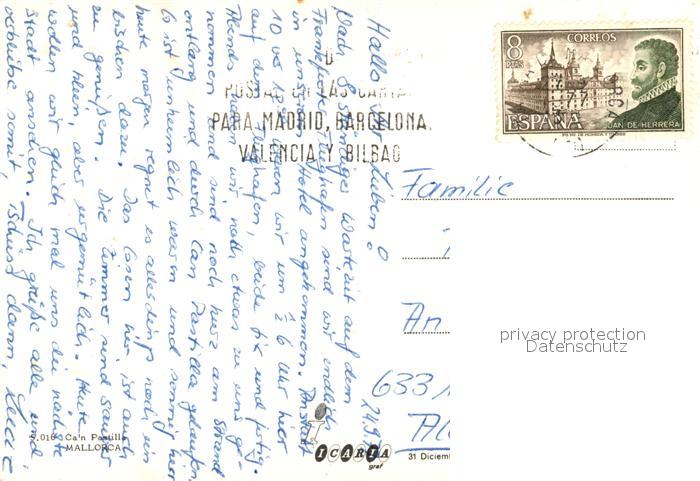 Hallo Lieben!
Nach 8 stündiger Wartezeit auf dem
Frankfurter Flughafen sind wir endlich
in unserem Hotel angekommen. Anstatt
10 vor wir um ½ 6 Uhr hier
auf dem Flughafen, beide fix und fertig.
Abends haben wir noch etwas zu uns ge-
nommen und sind noch kurz am Strand
entlang und durch Can Pastilla gelaufen.
Es ist unheimlich warm und sonnig hier
heute morgen regnet es allerdings noch ein
bischen dazu. Das Essen hier ist auch
zu genießen. Die Zimmer sind sauber
und klein, aber urgemütlich. Heute
wollen wir gleich mal uns die nächste
Stadt ansehen. Ich grüße alle und
verbleibe somit, Tschüß dann,
POSTAL EN LAS CARTAS
PARA MADRID, BARCELONA,
VALENCIA Y BILBAO
8
PTAS
CORREOS
ESPAÑA
JUAN DE HERRERA
Familie
An
633
privacy protection
Datenschutz
5.016 Ca'n Pastilla
MALLORCA
ICARIA
graf
31 Diciem